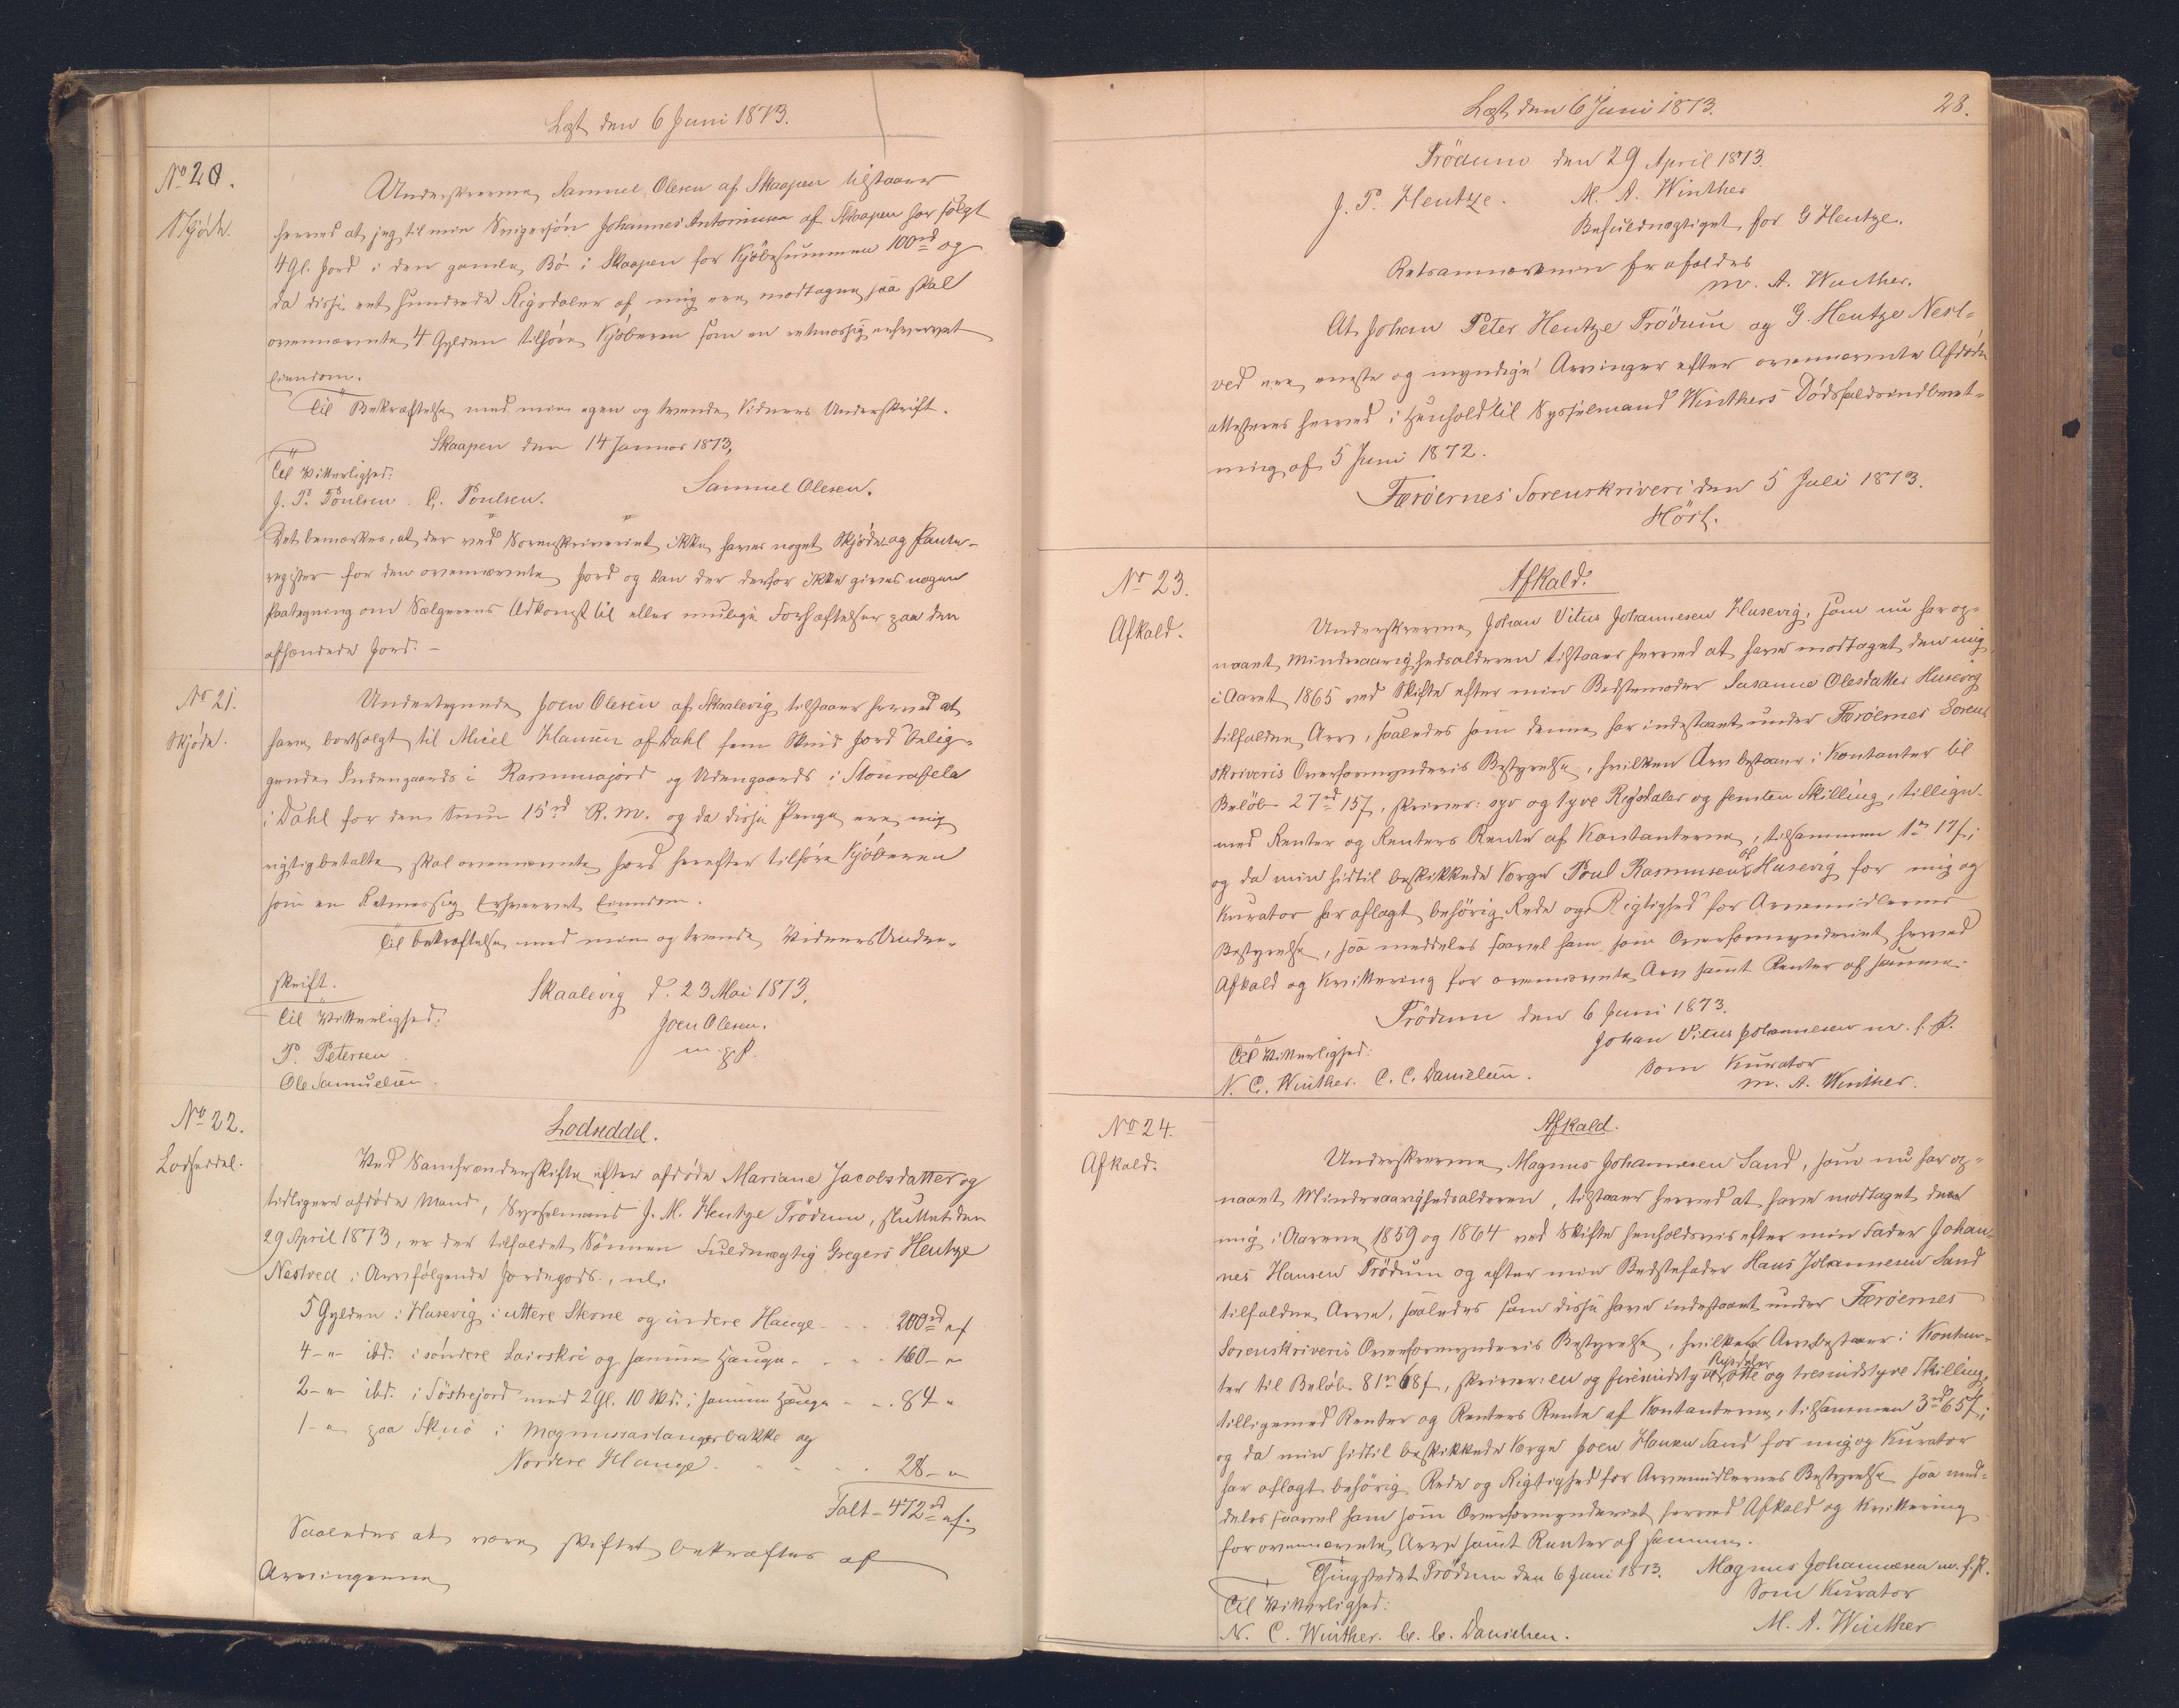 Læst den 6 Juni 1873.
No 20.
Skjöde.
Underskrevne Samuel Olesen af Skaapen tilstaaer
herved at jeg til min Svigersön Johannes Antoniusen af Skaapen har solgt
4 Gl. Jord i den gamle Bö i Skaapen for Kjöbesummen 100 rd og
da disse et hundrede Rigsdaler af mig ere modtagne saa skal
ovennævnte 4 Gylden tilhöre Kjöberen som en retmæssig erhvervet
Eiendom.
Til Bekræftelse med min egen og tvende Vidners Underskrift.
Skaapen den 14 Januar 1873,
Til Vitterlighed:
Samuel Olesen.
J. P. Poulsen. C. Poulsen.
Det bemærkes, at der ved Sorenskriveriet ikke haves noget Skjöde- og Pante-
register for den ovennævnte Jord og kan der derfor ikke gives nogen
Paategning om Sælgerens Adkomst til eller mulige Forhæftelser paa den
afhændede Jord. –
No 21.
Skjöde.
Undertegnede Joen Olesen af Skaalevig tilstaaer herved at
have bortsolgt til Micel Hansen af Dahl fem Skind Jord belig-
gende Indengaards i Rasmusajord og Udengaards i Stourafela
i Dahl for den Sum 15 rd R. M. og da disse Penge ere mig
rigtig betalte skal ovennævnte Jord herefter tilhöre Kjöberen
som en Retmessig Erhvervet Eiendom.
Til bekræftelse med min og tvende Vidners Under-
skrift.
Skaalevig d. 23 Mai 1873,
Til Vitterlighed:
Joen Olesen.
P. Petersen
m. p. P.
Ole Samuelsen.
No 22.
Lodseddel.
Lodseddel.
Ved Samfrændeskifte efter afdöde Mariane Jacobsdatter og
tidligere afdöde Mand, Sysselmand J. M. Hentze Trödum, sluttet den
29 April 1873, er der tilfaldet Sönnen Fuldmægtig Gregers Hentze
Nestved i Arv fölgende Jordegods, nl.
5 Gylden i Husevig i uttere Skorne og indere Hauge - - - 200 rd " s
4 - " - ibd. i söndere Lairskri og samme Hauge - - - 160 - "
2 - " - ibd. i Söstrejord med 2 Gl. 10 Skd. i samme Hauge - - 84 - "
1 - " - paa Skuö i Magnussarlangerbakke og
Nordere Hauge - - - - 28 - "
Talt - 472 rd " s.
Saaledes at være skiftet bekræftes af
Arvingerne
Læst den 6 Juni 1873.
28.
Trödum den 29 April 1873.
J. P. Hentze. M. A. Winther
Befuldmægtiget for G Hentze.
Retsanmærkning frafaldes
M. A. Winther.
At Johan Peter Hentze Trödum og G. Hentze Nest-
ved ere eneste og myndige Arvinger efter ovennævnte Afdöde
attesteres herved i Henhold til Sysselmand Winthers Dödsfaldsindberet-
ning af 5 Juni 1872.
Færöernes Sorenskriveri den 5 Juli 1873.
Höst.
No 23.
Afkald.
Afkald.
Underskrevne Johan Vitus Johannesen Husevig, som nu har op-
naaet Mindreaarighedsalderen tilstaaer herved at have modtaget den mig
i Aaret 1865 ved Skifte efter min Bedstemoder Susanne Olesdatter Husevig
tilfaldne Arv, saaledes som denne har indestaaet under Færöernes Soren-
skriveris Overformynderis Bestyrelse, hvilken Arv bestaaer i Kontanter til
Belöb 27 rd 15 s, skriver: syv og tyve Rigsdaler og femten Skilling, tillige-
med Renter og Renters Rente af Kontanterne, tilsammen 1 rd 17 s;
og da min hidtil beskikkede Værge Poul Rasmusen af Husevig for mig og
Kurator har aflagt behörig Rede og Rigtighed for Arvemidlernes
Bestyrelse, saa meddeles saavel ham som Overformynderiet herved
Afkald og Kvittering for ovennævnte Arv samt Renter af samme.
Trödum den 6 Juni 1873.
Johan Vitus Johannesen m. f. P.
Til Vitterlighed:
Som Kurator
N. C. Winther. C. C. Danielsen.
M. A. Winther.
No 24.
Afkald.
Afkald.
Underskrevne Magnus Johannesen Sand, som nu har op-
naaet Mindreaarighedsalderen, tilstaaer herved at have modtaget den
mig i Aarene 1859 og 1864 ved Skifte henholdsvis efter min Fader Johan-
nes Hansen Trödum og efter min Bedstefader Hans Johannesen Sand
tilfaldne Arve, saaledes som disse have indestaaet under Færöernes
Sorenskriveris Overformynderis Bestyrelse, hvilken Arv bestaaer i Kontan-
ter til Belöb 81 rd 68 s, skriver: en og firesindstyve Rigsdaler otte og tresindstyve Skilling,
tilligemed Renter og Renters Rente af Kontanterne, tilsammen 3 rd 65 s;
og da min hidtil beskikkede Værge Joen Hansen Sand for mig og Kurator
har aflagt behörig Rede og Rigtighed for Arvemidlernes Bestyrelse saa med-
deles saavel ham som Overformynderiet herved Afkald og Kvittering
for ovennævnte Arve samt Renter af samme.
Thingstedet Trödum den 6 Juni 1873. Magnus Johannesen m. f. P.
Til Vitterlighed:
Som Kurator
N. C. Winther. C. C. Danielsen.
M. A. Winther